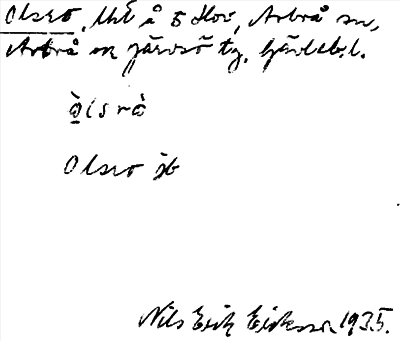 Olsro, Utl å 5 Hov, Arbrå sn,
Arbrå o Järvsö tg. Gävleb. l.
òlsrò
Olsro jb
Nils Erik Eriksson 1935.